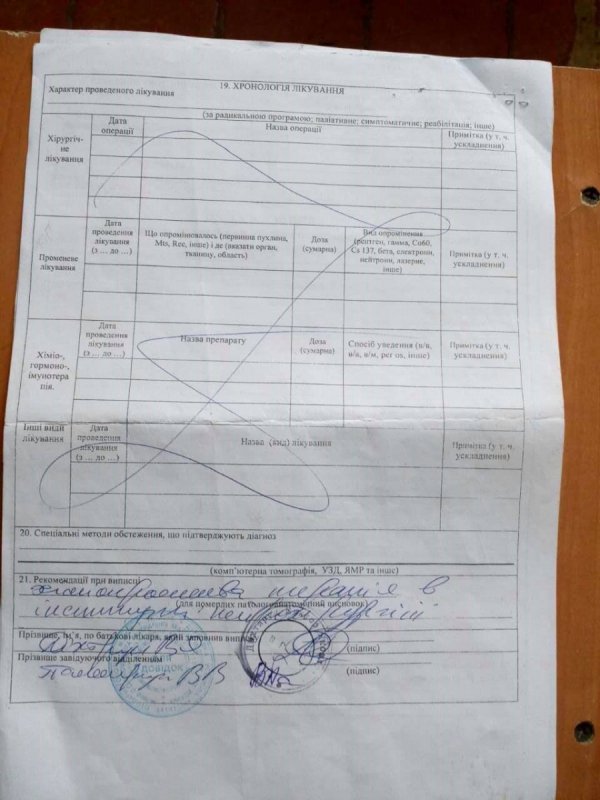 19. ХРОНОЛОГІЯ ЛІКУВАННЯ
Характер проведеного лікування
(за радикальною програмою; паліативне; симптоматичне; реабілітація; інше)
Хірургіч-
не
лікування
Дата
операції
Назва операції
Примітка (у т. ч.
ускладнення)
Променеве
лікування
Дата
проведення
лікування
(з ... до ...)
Що опромінювалось (первинна пухлина,
Mts, Rec, інше) і де (вказати орган,
тканину, область)
Доза
(сумарна)
Вид опромінення
(рентген, гамма, Co60,
Cs 137, бета, електрони,
нейтрони, лазерне,
інше)
Примітка (у т. ч.
ускладнення)
Хіміо-,
гормоно-,
імунотера
пія.
Дата
проведення
лікування
(з ... до ...)
Назва препарату
Доза
(сумарна)
Спосіб уведення (в/в,
в/а, в/м, per os, інше)
Примітка (у т. ч.
ускладнення)
Інші види
лікування
Дата
проведення
лікування
(з ... до ...)
Назва (вид) лікування
Примітка (у т. ч.
ускладнення)
20. Спеціальні методи обстеження, що підтверджують діагноз
(комп'ютерна томографія, УЗД, ЯМР та інше)
21. Рекомендації при виписці
терапія в
інституті
(для померлих патологоанатомічний висновок)
Прізвище, ім'я, по батькові лікаря, який заповнив виписку
(підпис)
Прізвище завідуючого відділенням
(підпис)